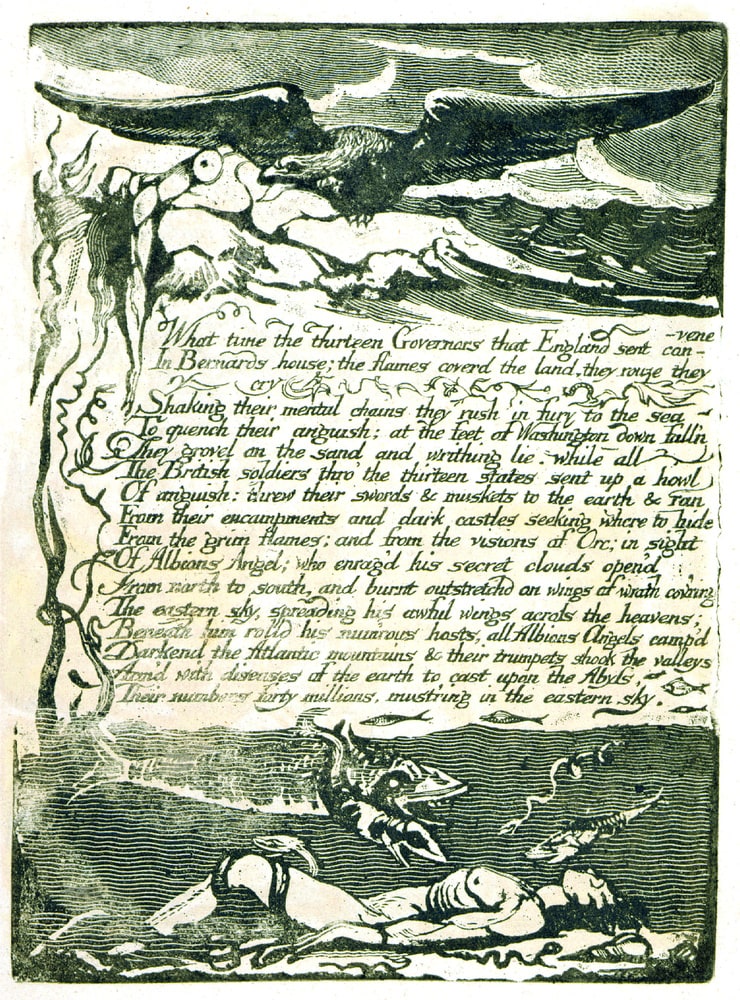 What time the thirteen Governors that England sent con-
-vene
In Bernards house; the flames coverd the land, they rouze they
cry
Shaking their mental chains they rush in fury to the sea
To quench their anguish; at the feet of Washington down fall'n
They grovel on the sand and writhing lie. while all
The British soldiers thro' the thirteen states sent up a howl
Of anguish: threw their swords & muskets to the earth & ran
From their encampments and dark castles seeking where to hide
From the grim flames; and from the visions of Orc; in sight
Of Albions Angel; who enrag'd his secret clouds open'd
From north to south, and burnt outstretchd on wings of wrath cov'ring
The eastern sky, spreading his awful wings across the heavens;
Beneath him roll'd his num'rous hosts, all Albions Angels camp'd
Darkend the Atlantic mountains & their trumpets shook the valleys
Arm'd with diseases of the earth to cast upon the Abyss,
Their numbers forty millions, must'ring in the eastern sky.